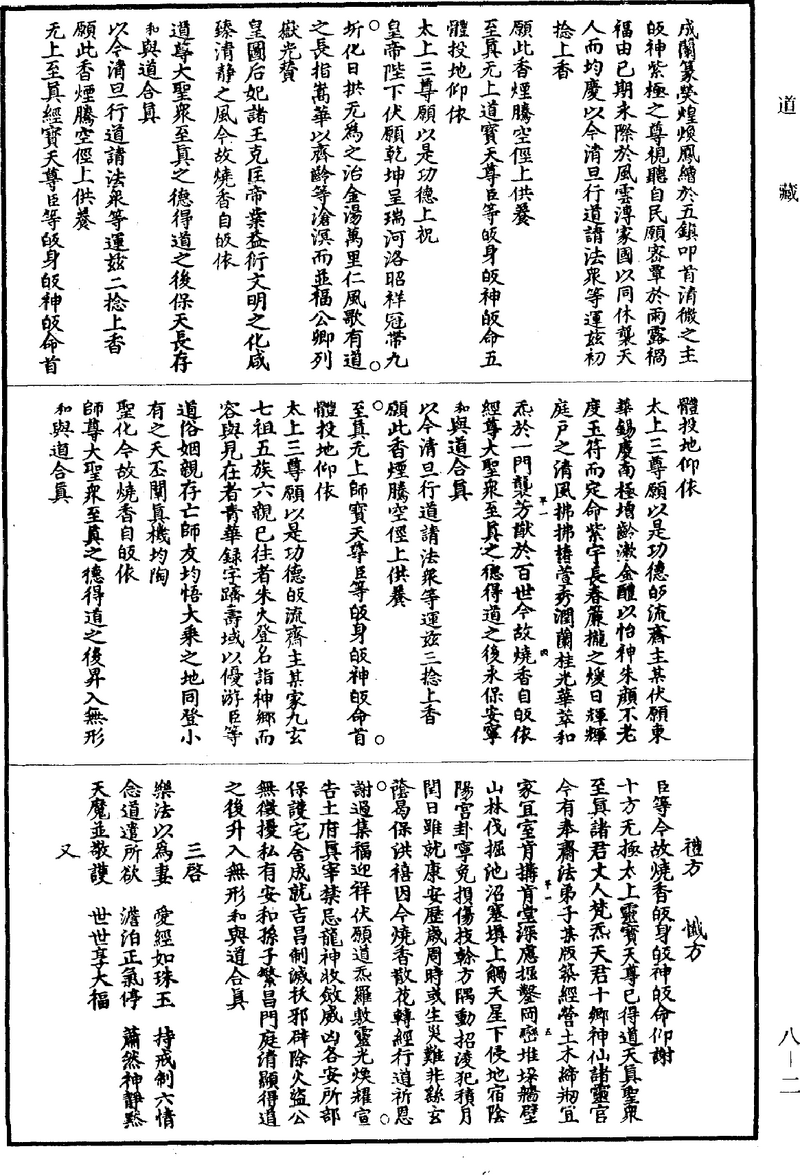 道藏
成蘭篆熒煌煥鳳繪於五鎮叩首清微之主
皈神紫極之尊視聽自民願審覃於雨露禍
福由已期永際於風雲溥家國以同休襲天
人而均慶以今清旦行道請法衆等運兹初
捻上香
願此香煙騰空徑上供養
至真无上道寶天尊臣等皈身皈神皈命五
體投地仰依
太上三尊願以是功德上祝
皇帝陛下伏願乾坤呈瑞河洛昭祥冠帶九
圻化日拱无為之治金湯萬里仁風歌有道
之長指嵩華以齊齡等滄溟而並福公卿列
嶽光贊
皇圖后妃諸王克匡帝業益衍文明之化咸
臻清静之風今故燒香自皈依
道尊大聖衆至真之德得道之後保天長存
和與道合真
以今清旦行道請法衆等運兹二捻上香
願此香煙騰空徑上供養
无上至真經寶天尊臣等皈身皈神皈命首
體投地仰依
太上三尊願以是功德皈流齋主某伏願東
華錫慶南極增齡漱金醴以怡神朱顔不老
度玉符而定命紫宇長春簾攏之煖日輝輝
庭戶之清風拂拂椿萱秀潤蘭桂光華萃和
炁於一門襲芳猷於百世今故燒香自皈依
經尊大聖衆至真之德得道之後永保安寧
和與道合真
以今清旦行道請法衆等運兹三捻上香
願此香煙騰空徑上供養
至真无上師寶天尊臣等皈身皈神皈命首
體投地仰依
太上三尊願以是功德皈流齋主某家九玄
七祖五族六親已往者朱火登名詣神鄉而
容與見在者青華録字躋壽域以優游臣等
道俗姻親存亡師友均悟大乘之地同登小
有之天丕闡真機均陶
聖化今故燒香自皈依
師尊大聖衆至真之德得道之後昇入無形
和與道合真
禮方　懺方
臣等今故燒香皈身皈神皈命仰謝
十方无極太上靈寶天尊已得道天真聖衆
至真諸君丈人梵炁天君十鄉神仙諸靈官
今有奉齋法弟子某版築經營土木締刱宜
家宜室肯搆肯堂深應掘鑿岡巒堆垛牆壁
山林伐掘池沼塞填上觸天星下侵地宿陰
陽宮卦寧免損傷技幹方隅動招淩犯積月
閏日雖就康安歷歲周時或生災難非繇玄
蔭曷保洪禧因今燒香散花轉經行道祈恩
謝過集福迎祥伏願道炁羅敷靈光煥耀宣
告土府真宰禁忌龍神收斂威凶各安所部
保護宅舍成就吉昌制滅妖邪辟除火盜公
無徵擾私有安和孫子繁昌門庭清顯得道
之後升入無形和與道合真
三啓
樂法以為妻　愛經如珠玉　持戒制六情
念道遣所欲　澹泊正氣停　蕭然神靜默
天魔並敬護　世世享大福
又
八－二